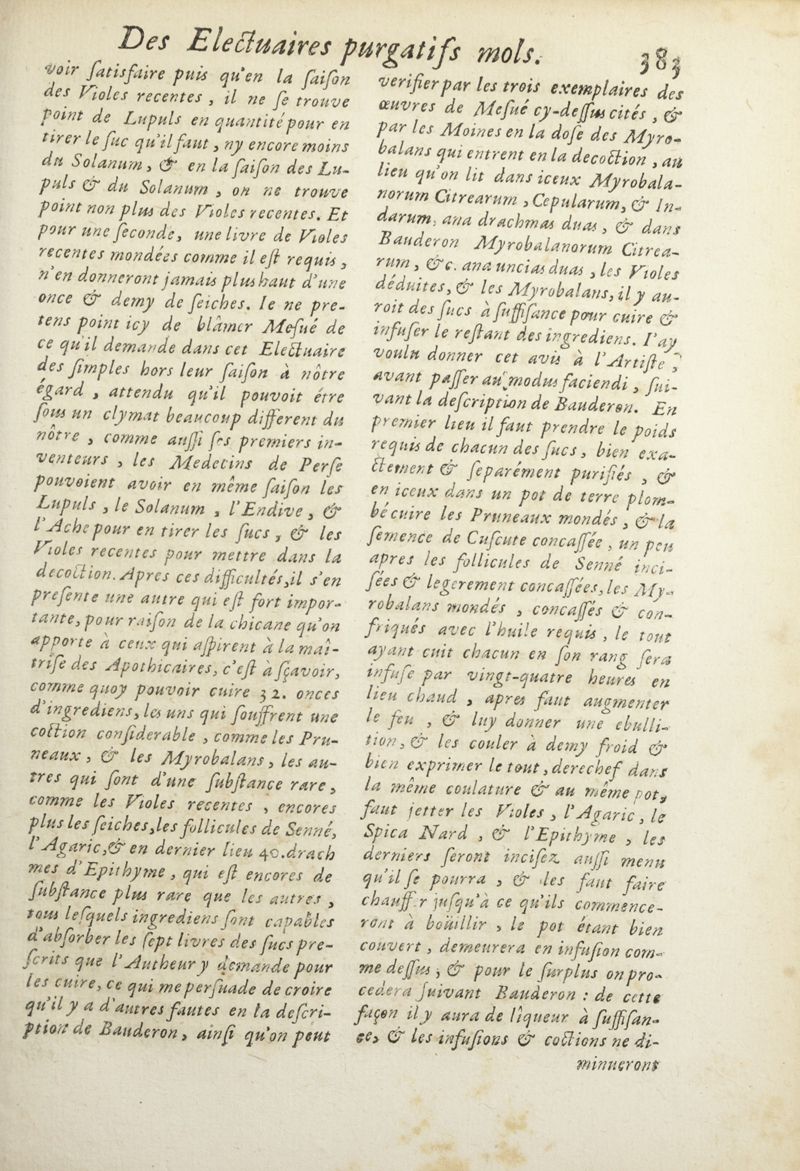 Des Electuaires purgatifs mols. 383
voir satisfaire puis qu'en la saison
des Violes recentes, il ne se trouve
point de Lupuls en quantité pour en
tirer le suc qu'il faut, ny encore moins
du Solanum, & en la saison des Lu-
puls & du Solanum, on ne trouve
point non plus des Violes recentes. Et
pour une seconde, une livre de Violes
recentes mondées comme il est requis,
n'en donneront jamais plus haut d'une
once & demy de seiches. Ie ne pre-
tens point icy de blâmer Mesué de
ce qu'il demande dans cet Electuaire
des simples hors leur saison à nôtre
égard, attendu qu'il pouvoit étre
sous un clymat beaucoup different du
nôtre, comme aussi ses premiers in-
venteurs, les Medecins de Perse
pouvoient avoir en même saison les
Lupuls, le Solanum, l'Endive, &
l'Ache pour en tirer les sucs, & les
Violes recentes pour mettre dans la
decoction. Apres ces difficultés, il s'en
presente une autre qui est fort impor-
tante, pour raison de la chicane qu'on
apporte à ceux qui aspirent à la maî-
trise des Apothicaires, c'est à sçavoir,
comme quoy pouvoir cuire 32. onces
d'ingrediens, les uns qui souffrent une
coction considerable, comme les Pru-
neaux, & les Myrobalans, les au-
tres qui sont d'une substance rare,
comme les Violes recentes, encores
plus les seiches, les follicules de Senné,
l'Agaric, & en dernier lieu 40. drach
mes d'Epithyme, qui est encores de
substance plus rare que les autres,
tous lesquels ingrediens sont capables
d'absorber les sept livres des sucs pre-
scrits que l'Autheur y demande pour
les cuire, ce qui me persuade de croire
qu'il y a d'autres fautes en la descri-
ption de Bauderon, ainsi qu'on peut
verifier par les trois exemplaires des
œuvres de Mesué cy-dessus cités, &
par les Moines en la dose des Myro-
balans qui entrent en la decoction, au
lieu qu'on lit dans iceux Myrobala-
norum Citrearum, Cepularum, & In-
darum, ana drachmas duas, & dans
Bauderon Myrobalanorum Citrea-
rum, &c. ana uncias duas, les Violes
deduites, & les Myrobalans, il y au-
roit des sucs à suffisance pour cuire &
infuser le restant des ingrediens. I'ay
voulu donner cet avis à l'Artiste,
avant passer au modus faciendi, sui-
vant la description de Bauderon. En
premier lieu il faut prendre le poids
requis de chacun des sucs, bien exa-
ctement & separément purifiés, &
en iceux dans un pot de terre plom-
bé cuire les Pruneaux mondés, & la
semence de Cuscute concassée, un peu
apres les follicules de Senné inci-
sées & legerement concassées, les My-
robalans mondés, concassés & con-
friqués avec l'huile requis, le tout
ayant cuit chacun en son rang sera
infusé par vingt-quatre heures en
lieu chaud, apres faut augmenter
le feu, & luy donner une ebulli-
tion, & les couler à demy froid &
bien exprimer le tout, derechef dans
la même coulature & au même pot,
faut jetter les Violes, l'Agaric, le
Spica Nard, & l'Epithyme, les
derniers seront incisez aussi menu
qu'il se pourra, & les faut faire
chauffer jusqu'à ce qu'ils commence-
ront à boüillir, le pot étant bien
couvert, demeurera en infusion com-
me dessus, & pour le surplus on pro-
cedera suivant Bauderon : de cette
façon il y aura de liqueur à suffisan-
ce, & les infusions & coctions ne di-
minueront